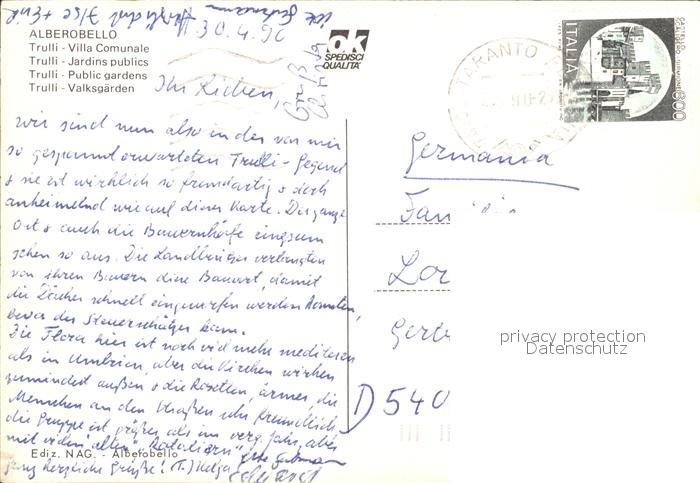 30.4.90
ALBEROBELLO
Trulli - Villa Comunale
Trulli - Jardins publics
Trulli - Public gardens
Trulli - Valksgärden
OK
SPEDISCI
QUALITA'
Ihr Lieben,
wir sind nun also in der von mir
so gespannt erwarteten Trulli-Gegend
+ sie ist wirklich so fremdartig + doch
anheimelnd wie auf dieser Karte. Der ganze
Ort + auch die Bauernhöfe ringsum
sehen so aus. Die verlangten
von ihren Bauern diese Bauart, damit
die Dächer schnell eingeworfen werden konnten,
bevor der Steuerschätzer kam.
Die Flora hier ist noch viel mehr mediterran
als in Umbrien, aber die Kirchen wirken
zumindest außen + die Rosetten, ärmer, die
Menschen an den Straßen sehr freundlich
die Gruppe ist größer als im verg. Jahr, aber
mit vielen "alten"
Ediz. NAG. - Alberobello
ganz herzliche Grüße! Helga
TARANTO
ITALIA
800
Germania
Fam
D 540
privacy protection
Datenschutz